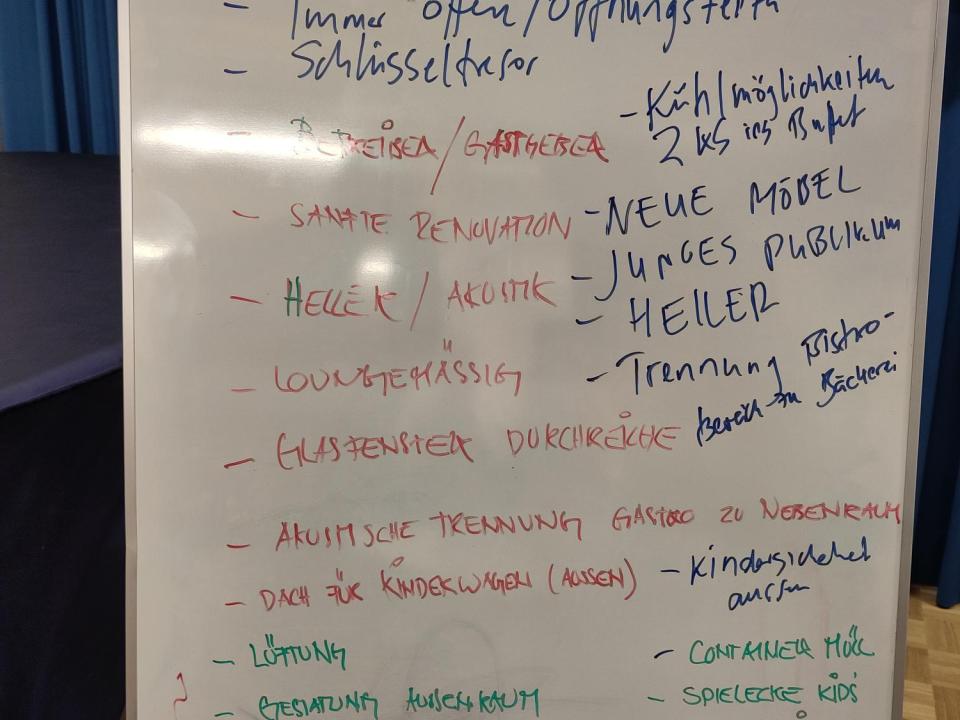 - Immer offen/Öffnungszeiten
- Schlüsseltresor
- BETREIBER/GASTGEBER
- Kühlmöglichkeiten
2 ins Bufet
- SANFTE RENOVATION
- NEUE MÖBEL
- HELLER/AKUSTIK
- JUNGES PUBLIKUM
- HELLER
- LOUNGEMÄSSIG
- Trennung Bistro-
bereich zu Bäckerei
- GLASFENSTER DURCHREICHE
- AKUSTISCHE TRENNUNG GASTRO ZU NEBENRAUM
- DACH FÜR KINDERWAGEN (AUSSEN)
- Kindersicherheit
aussen
- LÜFTUNG
- CONTAINER MÜLL
- GESTALTUNG AUSSENRAUM
- SPIELECKE KIDS